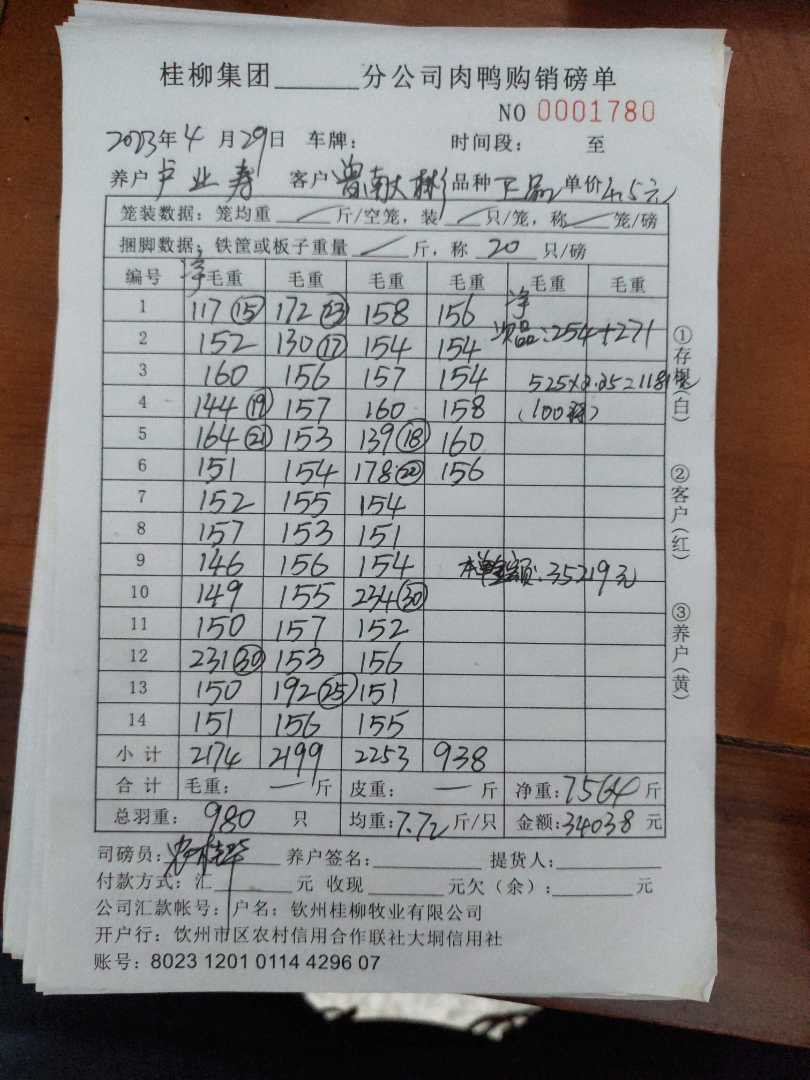 桂柳集团______分公司肉鸭购销磅单
NO 0001780
2023年4月29日 车牌: 时间段: 至
养户 卢业寿 客户 曾南大彬 品种 正品 单价 4.5元
笼装数据: 笼均重 / 斤/空笼, 装 / 只/笼, 称 / 笼/磅
捆脚数据: 铁筐或板子重量 / 斤, 称 20 只/磅
编号 净毛重 毛重 毛重 毛重 毛重 毛重
1 117⑮ 172㉓ 158 156 净
2 152 130⑰ 154 154 次品:254+271
3 160 156 157 154
4 144⑲ 157 160 158
5 164㉑ 153 139⑱ 160
6 151 154 178㉒ 156
7 152 155 154
8 157 153 151
9 146 156 154 本单金额:35219元
10 149 155 234㉚
11 150 157 152
12 231㉚ 153 156
13 150 192㉕ 151
14 151 156 155
小计 2174 2199 2253 938
合计 毛重: — 斤 皮重: — 斤 净重:7564斤
总羽重: 980 只 均重:7.72斤/只 金额:34038元
司磅员: 养户签名: 提货人:
付款方式: 汇 元 收现 元欠(余): 元
公司汇款帐号: 户名: 钦州桂柳牧业有限公司
开户行: 钦州市区农村信用合作联社大垌信用社
账号: 8023 1201 0114 4296 07
①存根(白)
②客户(红)
③养户(黄)